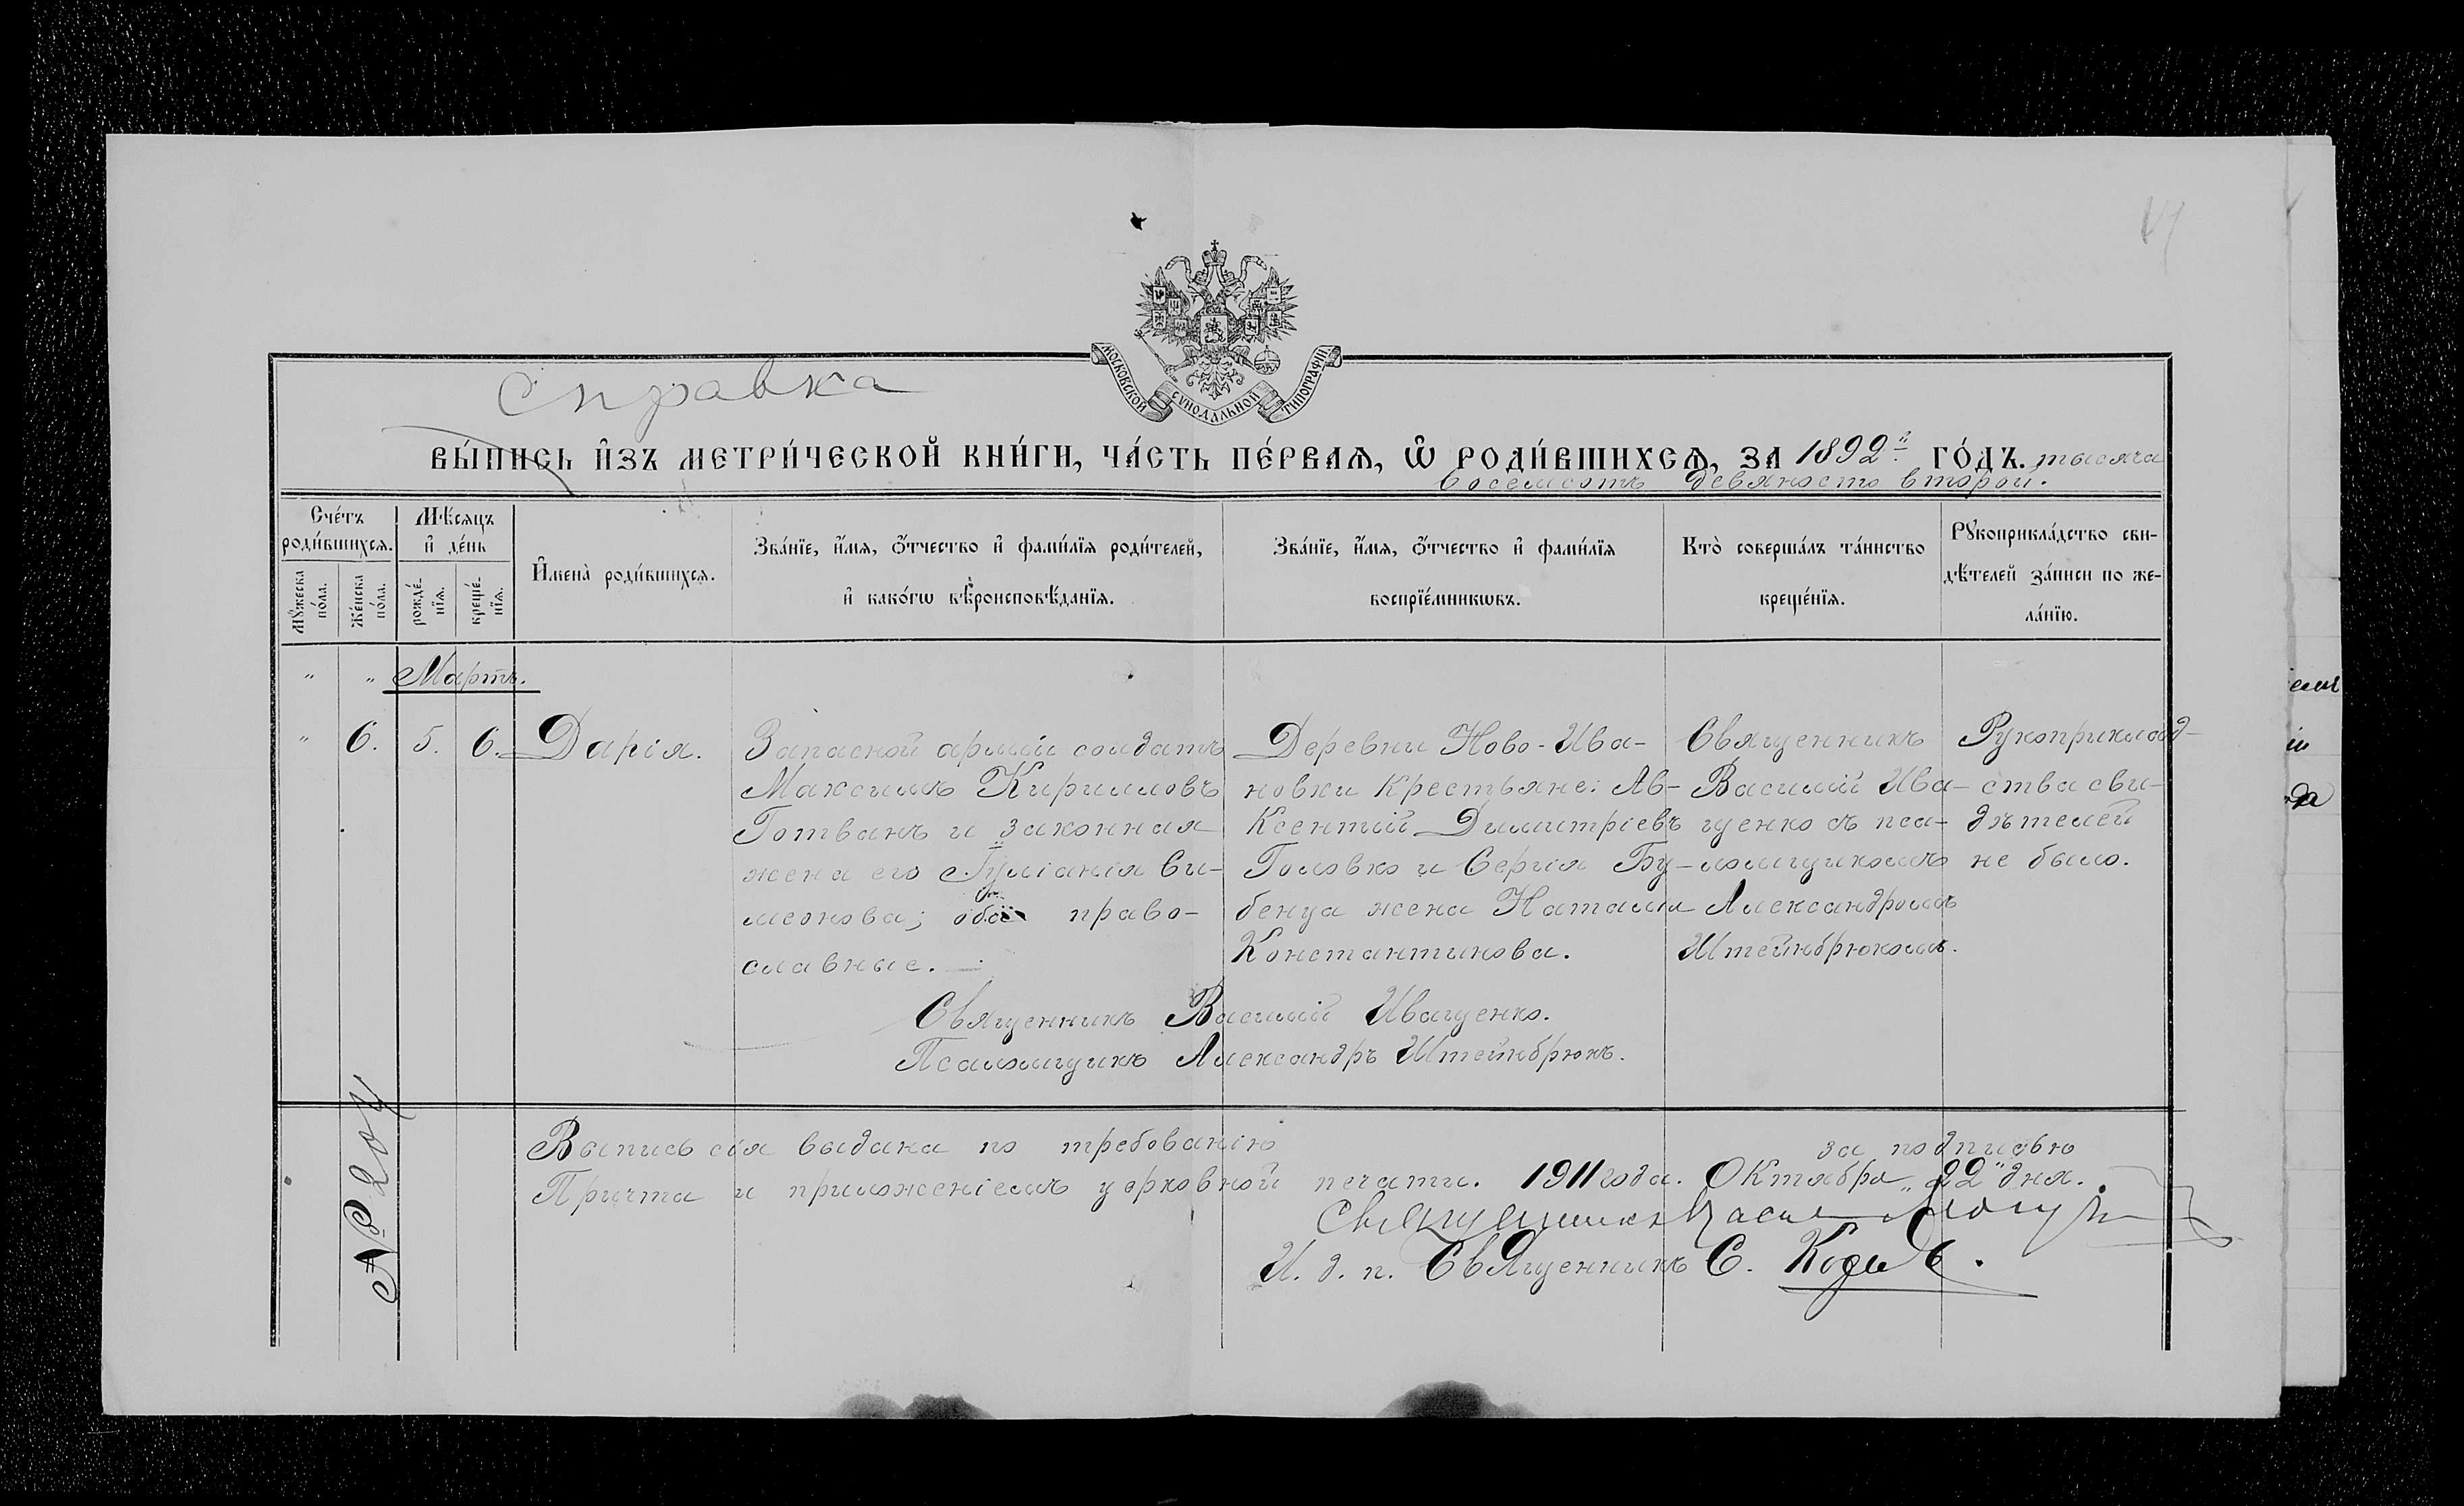 МОСКОВСКОЙ СѴНОДАЛЬНОЙ ТИПОГРАФІИ
Справка
ВЫ́ПИСЬ И҆ЗЪ МЕТРИ́ЧЕСКОЙ КНИ́ГИ, ЧА́СТЬ ПЕ́РВАѦ, Ѡ҆ РОДИ́ВШИХСѦ, ЗА 1892й ГО́ДЪ. тысяча
восемсотъ девяносто второй.
Сче́тъ роди́вшихсѧ.
Мꙋ́жеска по́ла.
Же́нска по́ла.
Мѣ́сѧцъ и҆ де́нь
рожде́нїѧ.
креще́нїѧ.
И҆мена̀ роди́вшихсѧ.
Зва́нїе, и҆́мѧ, ѻ҆́тчество и҆ фами́лїѧ роди́телей,
и҆ како́гѡ вѣроисповѣ́данїѧ.
Зва́нїе, и҆́мѧ, ѻ҆́тчество и҆ фами́лїѧ
воспрїе́мникѡвъ.
Кто̀ соверша́лъ та́инство
креще́нїѧ.
Рꙋкоприкла́дство сви-
дѣ́телей за́писи по же-
ла́нїю.
" " Мартъ.
" 6. 5. 6. Дарія.
Запасной арміи солдатъ
Максимъ Кирилловъ
Готванъ и законная
жена его Іуліанія Си-
меонова; обa право-
славные.
Деревни Ново-Ива-
новки крестьяне: Ав-
ксентій Димитріевъ
Головко и Сергія Бу-
бенца жена Наталія
Константинова.
Священникъ
Василій Ива-
щенко съ пса-
ломщикомъ
Александромъ
Штейнбрюкомъ.
Рукоприклад-
ства сви-
дѣтелей
не было.
Священникъ Василій Иващенко.
Псаломщикъ Александръ Штейнбрюкъ.
№ 204
Выпись сія выдана по требованію за подписью
Причта и приложеніемъ церковной печати. 1911 года. Октября „22" дня.
Священникъ
И. д. п. Священникъ С.